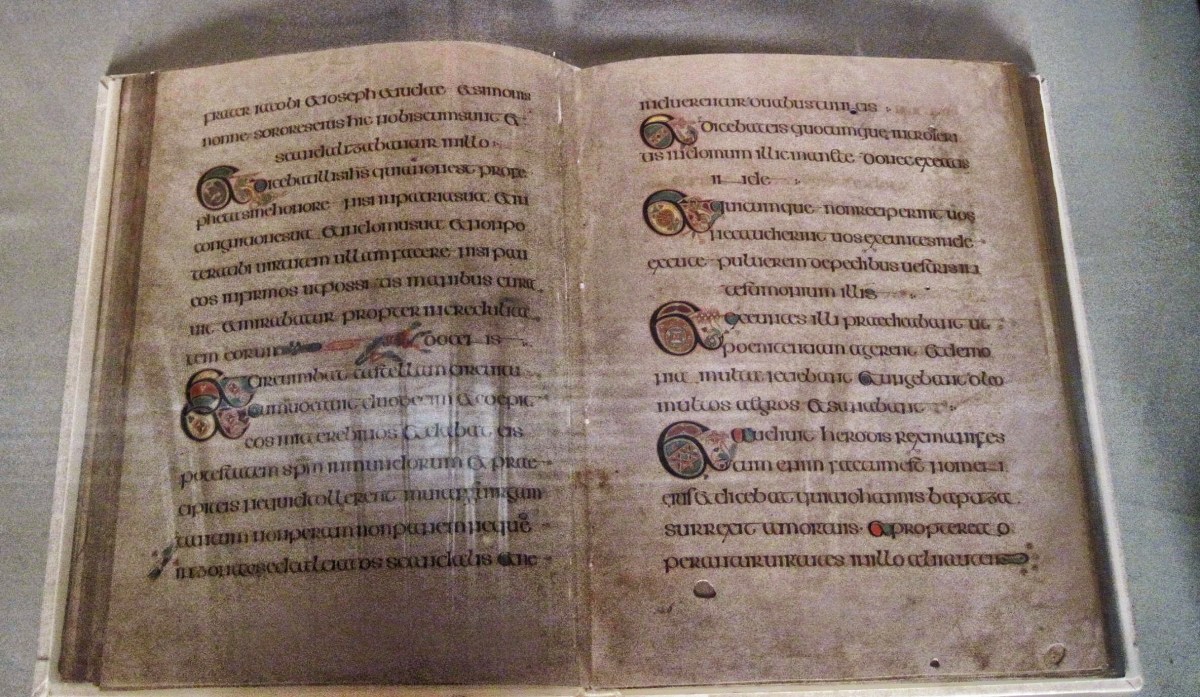 frater iacobi & ioseph & iudae & simonis
nonne sorores eius hic nobiscum sunt &
scandalizabantur in illo
Et dicebat illis ihs quia non est profe
pheta sine honore nisi in patria sua & in
cognatione sua & in domu sua & non po
terat ibi uirtutem ullam facere nisi pau
cos infirmos inpossitis manibus cura
uit & mirabatur propter incredulita
tem eorum
Et circumibat castellam circuitu
Et conuocauit duodecim & coepit
eos mittere binos & dabat eis
potestatem spm inmundorum & prae
cipit eis ne quid tollerent in uia nisi uirgam
tantum non peram non panem neque
in zona aes sed calciatos scandalis & ne
induerentur duabus tunicis
Et dicebat eis quocumque introieri
tis in domum illic manete donec exeatis
inde
Et quicumque non reciperint uos
nec audierint uos exeuntes inde
excutite puluerem de pedibus uestris in
testimonium illis
Et exeuntes illi praedicabant ut
poenitentiam agerent & demo
nia multa ieciebant & unguebant oleo
multos aegros & sanabant
Et audiuit herodis rex manifes
tum enim factum est nomen
eius & dicebat quia iohannis baptiza
surrexit a mortuis & propterea o
perantur uirtutes in illo